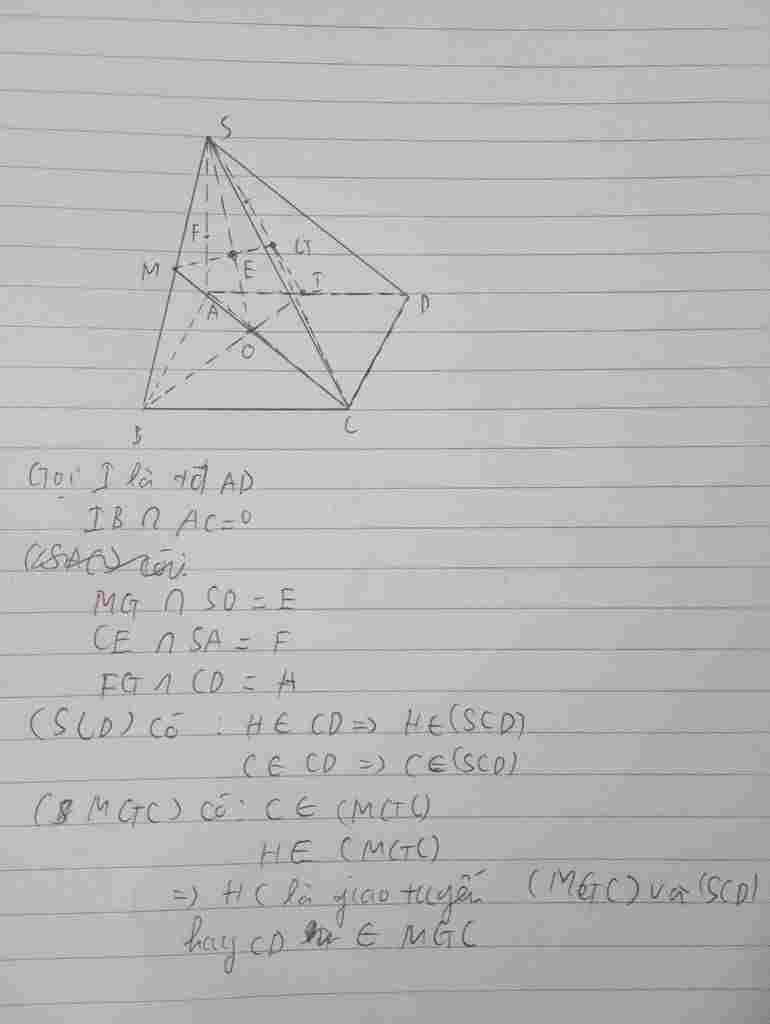 S
F
M
E
G
I
D
A
O
B
C
Gọi I là tđ AD
IB ∩ AC = O
(SAC) có:
MG ∩ SO = E
CE ∩ SA = F
FG ∩ CD = H
(SCD) có : H ∈ CD => H ∈ (SCD)
C ∈ CD => C ∈ (SCD)
(MGC) có: C ∈ (MGC)
H ∈ (MGC)
=> HC là giao tuyến (MGC) và (SCD)
hay CD ∈ MGC